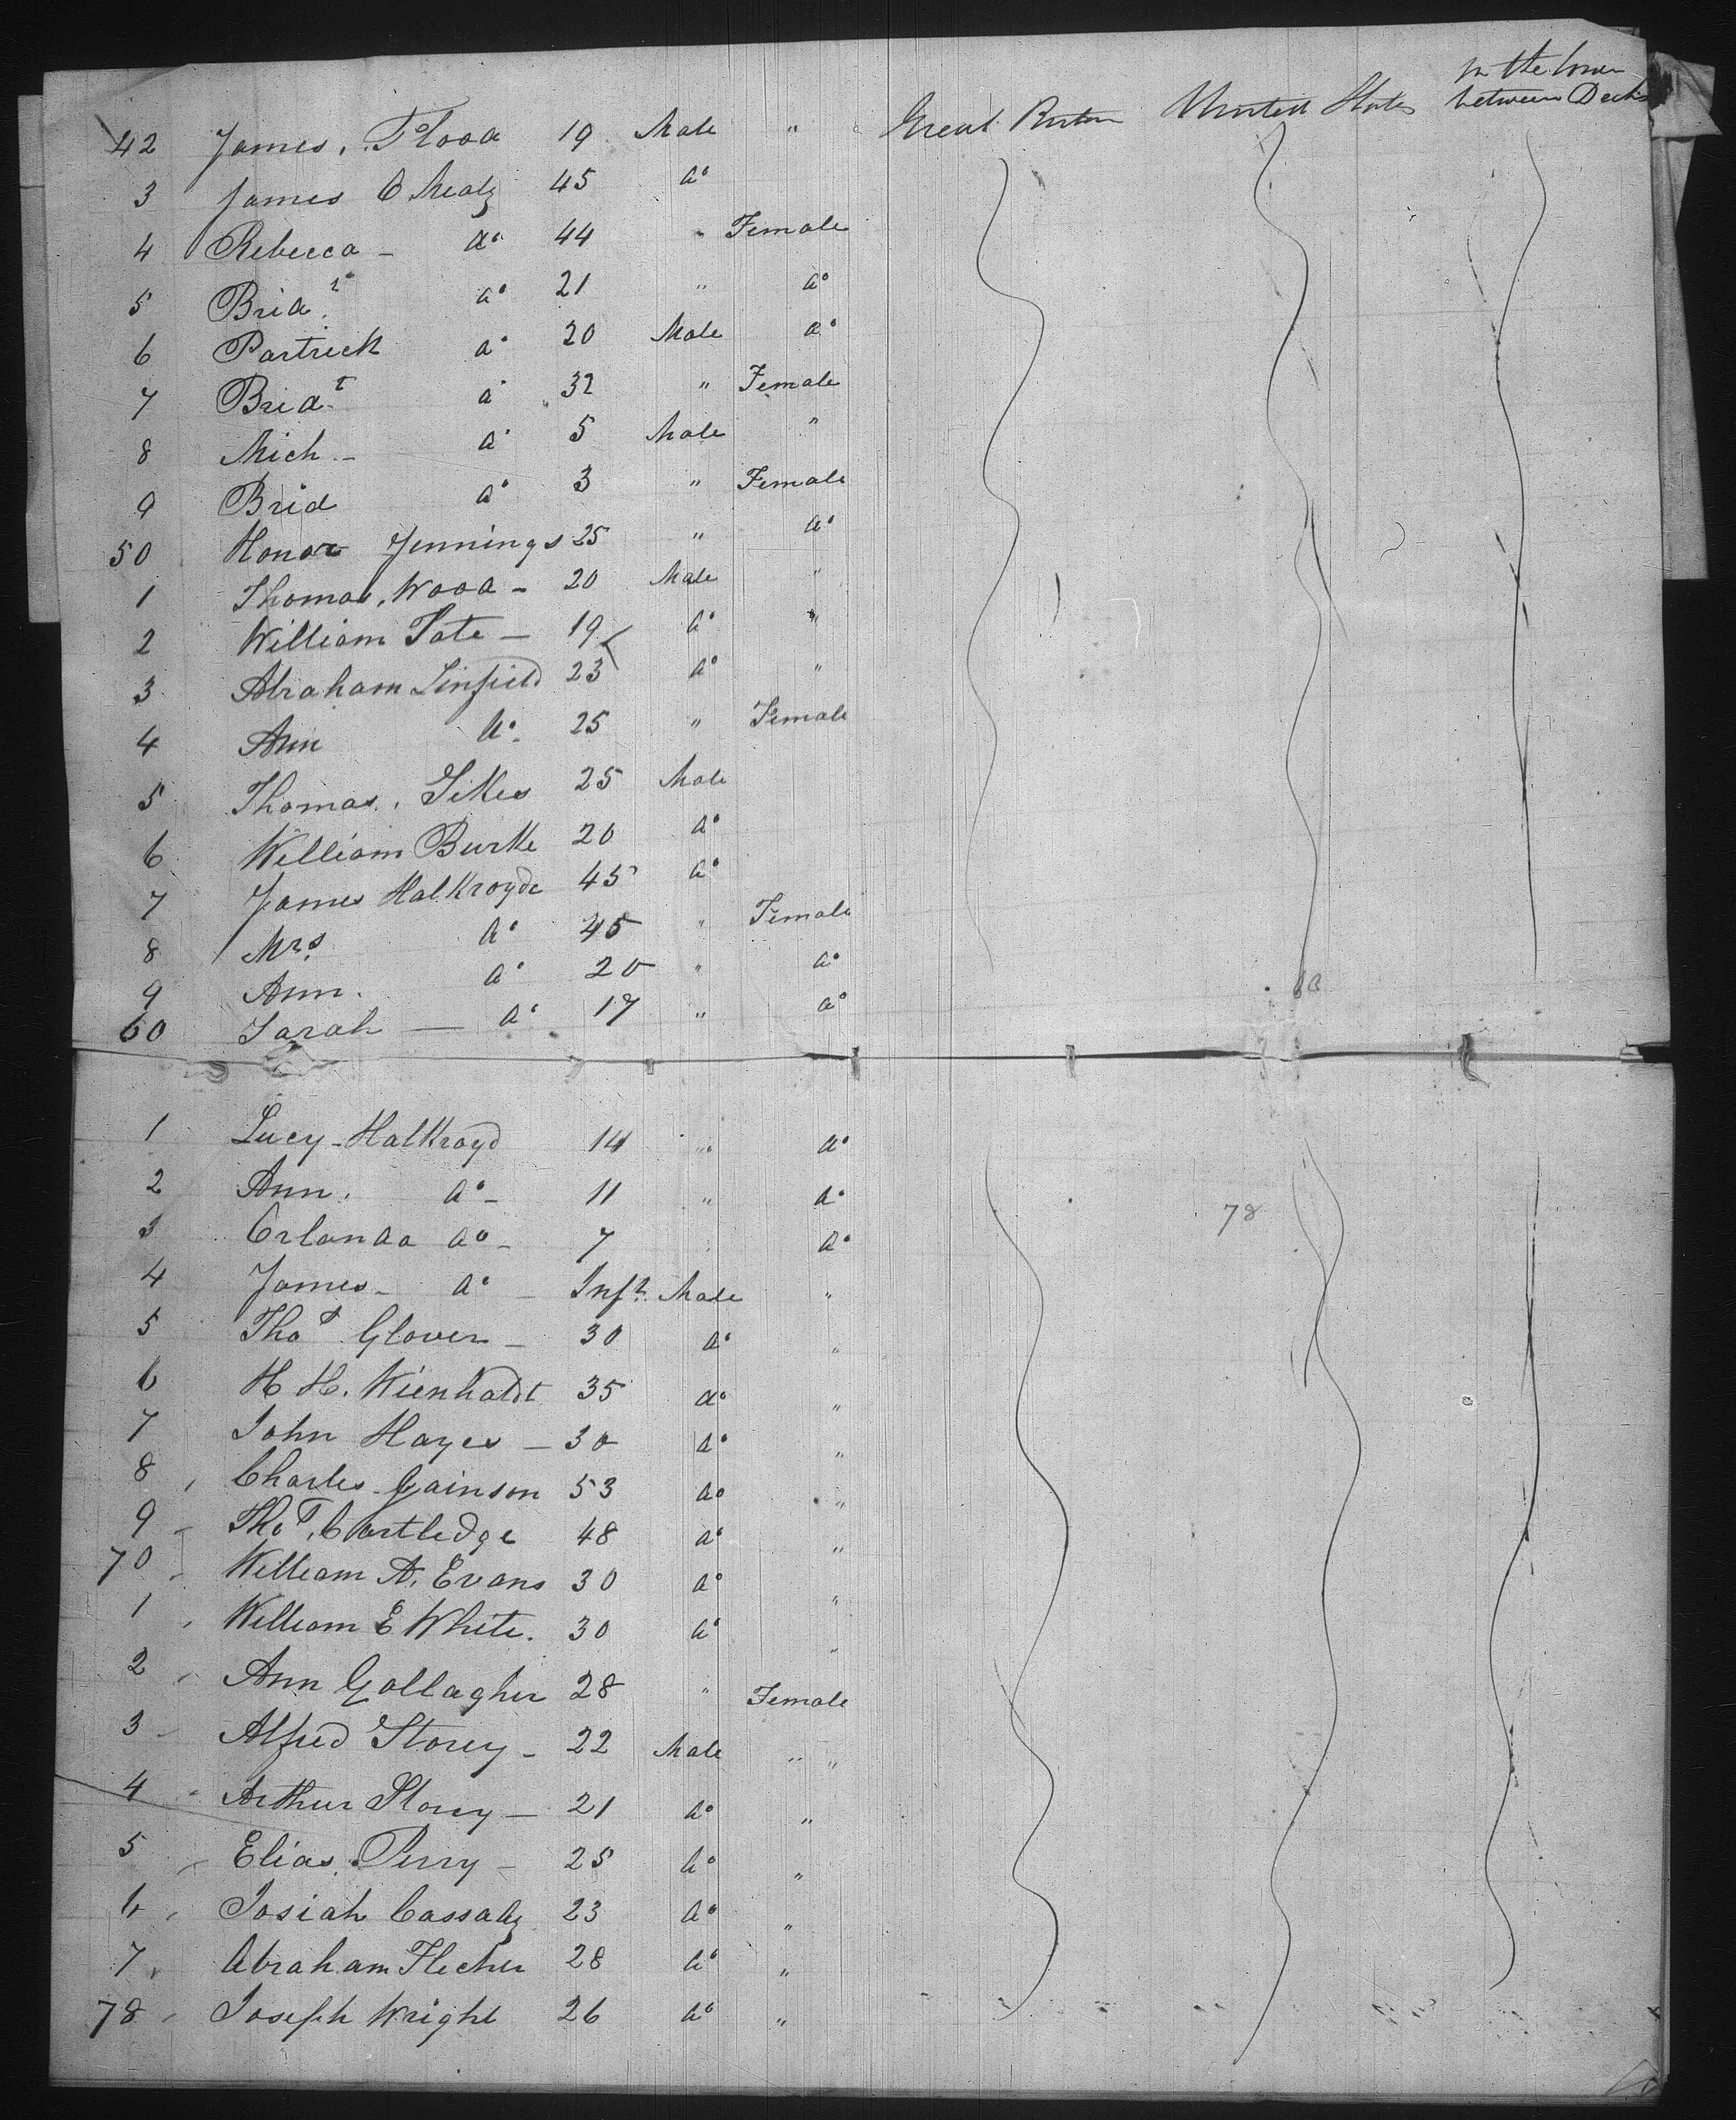 in the lower
between Decks
42 James Flood 19 Male " Great Britain United States
3 James O Mealy 45 do
4 Rebecca - do 44 " Female
5 Bridt do 21 " do
6 Partrick do 20 Male do
7 Bridt do 32 " Female
8 Mich - do 5 Male "
9 Brid do 3 " Female
50 Honor Jennings 25 " do
1 Thomas Wood - 20 Male "
2 William Tate - 19 do "
3 Abraham Linfield 23 do "
4 Ann do 25 " Female
5 Thomas Sikes 25 Male
6 William Burke 20 do
7 James Halkroyde 45 do
8 Mrs do 45 " Female
9 Ann do 20 " do
60 Sarah — do 17 " do
60
1 Lucy - Halkroyd 14 " do
2 Ann do - 11 " do
78
3 Orlanda do - 7 do
4 James - do - Inft Male "
5 Thos Glover - 30 do "
6 H H. Kienholdt 35 do "
7 John Hayes - 30 do "
8 Charles Gainson 53 do "
9 Thos Cartledge 48 do "
70 William A. Evans 30 do "
1 William E White. 30 do "
2 Ann Gollagher 28 " Female
3 Alfred Storey - 22 Male " "
4 Arthur Storey - 21 do "
5 Elias Perry - 25 do "
6 Josiah Cassady 23 do "
7 Abraham Flecher 28 do "
78 Joseph Wright 26 do "